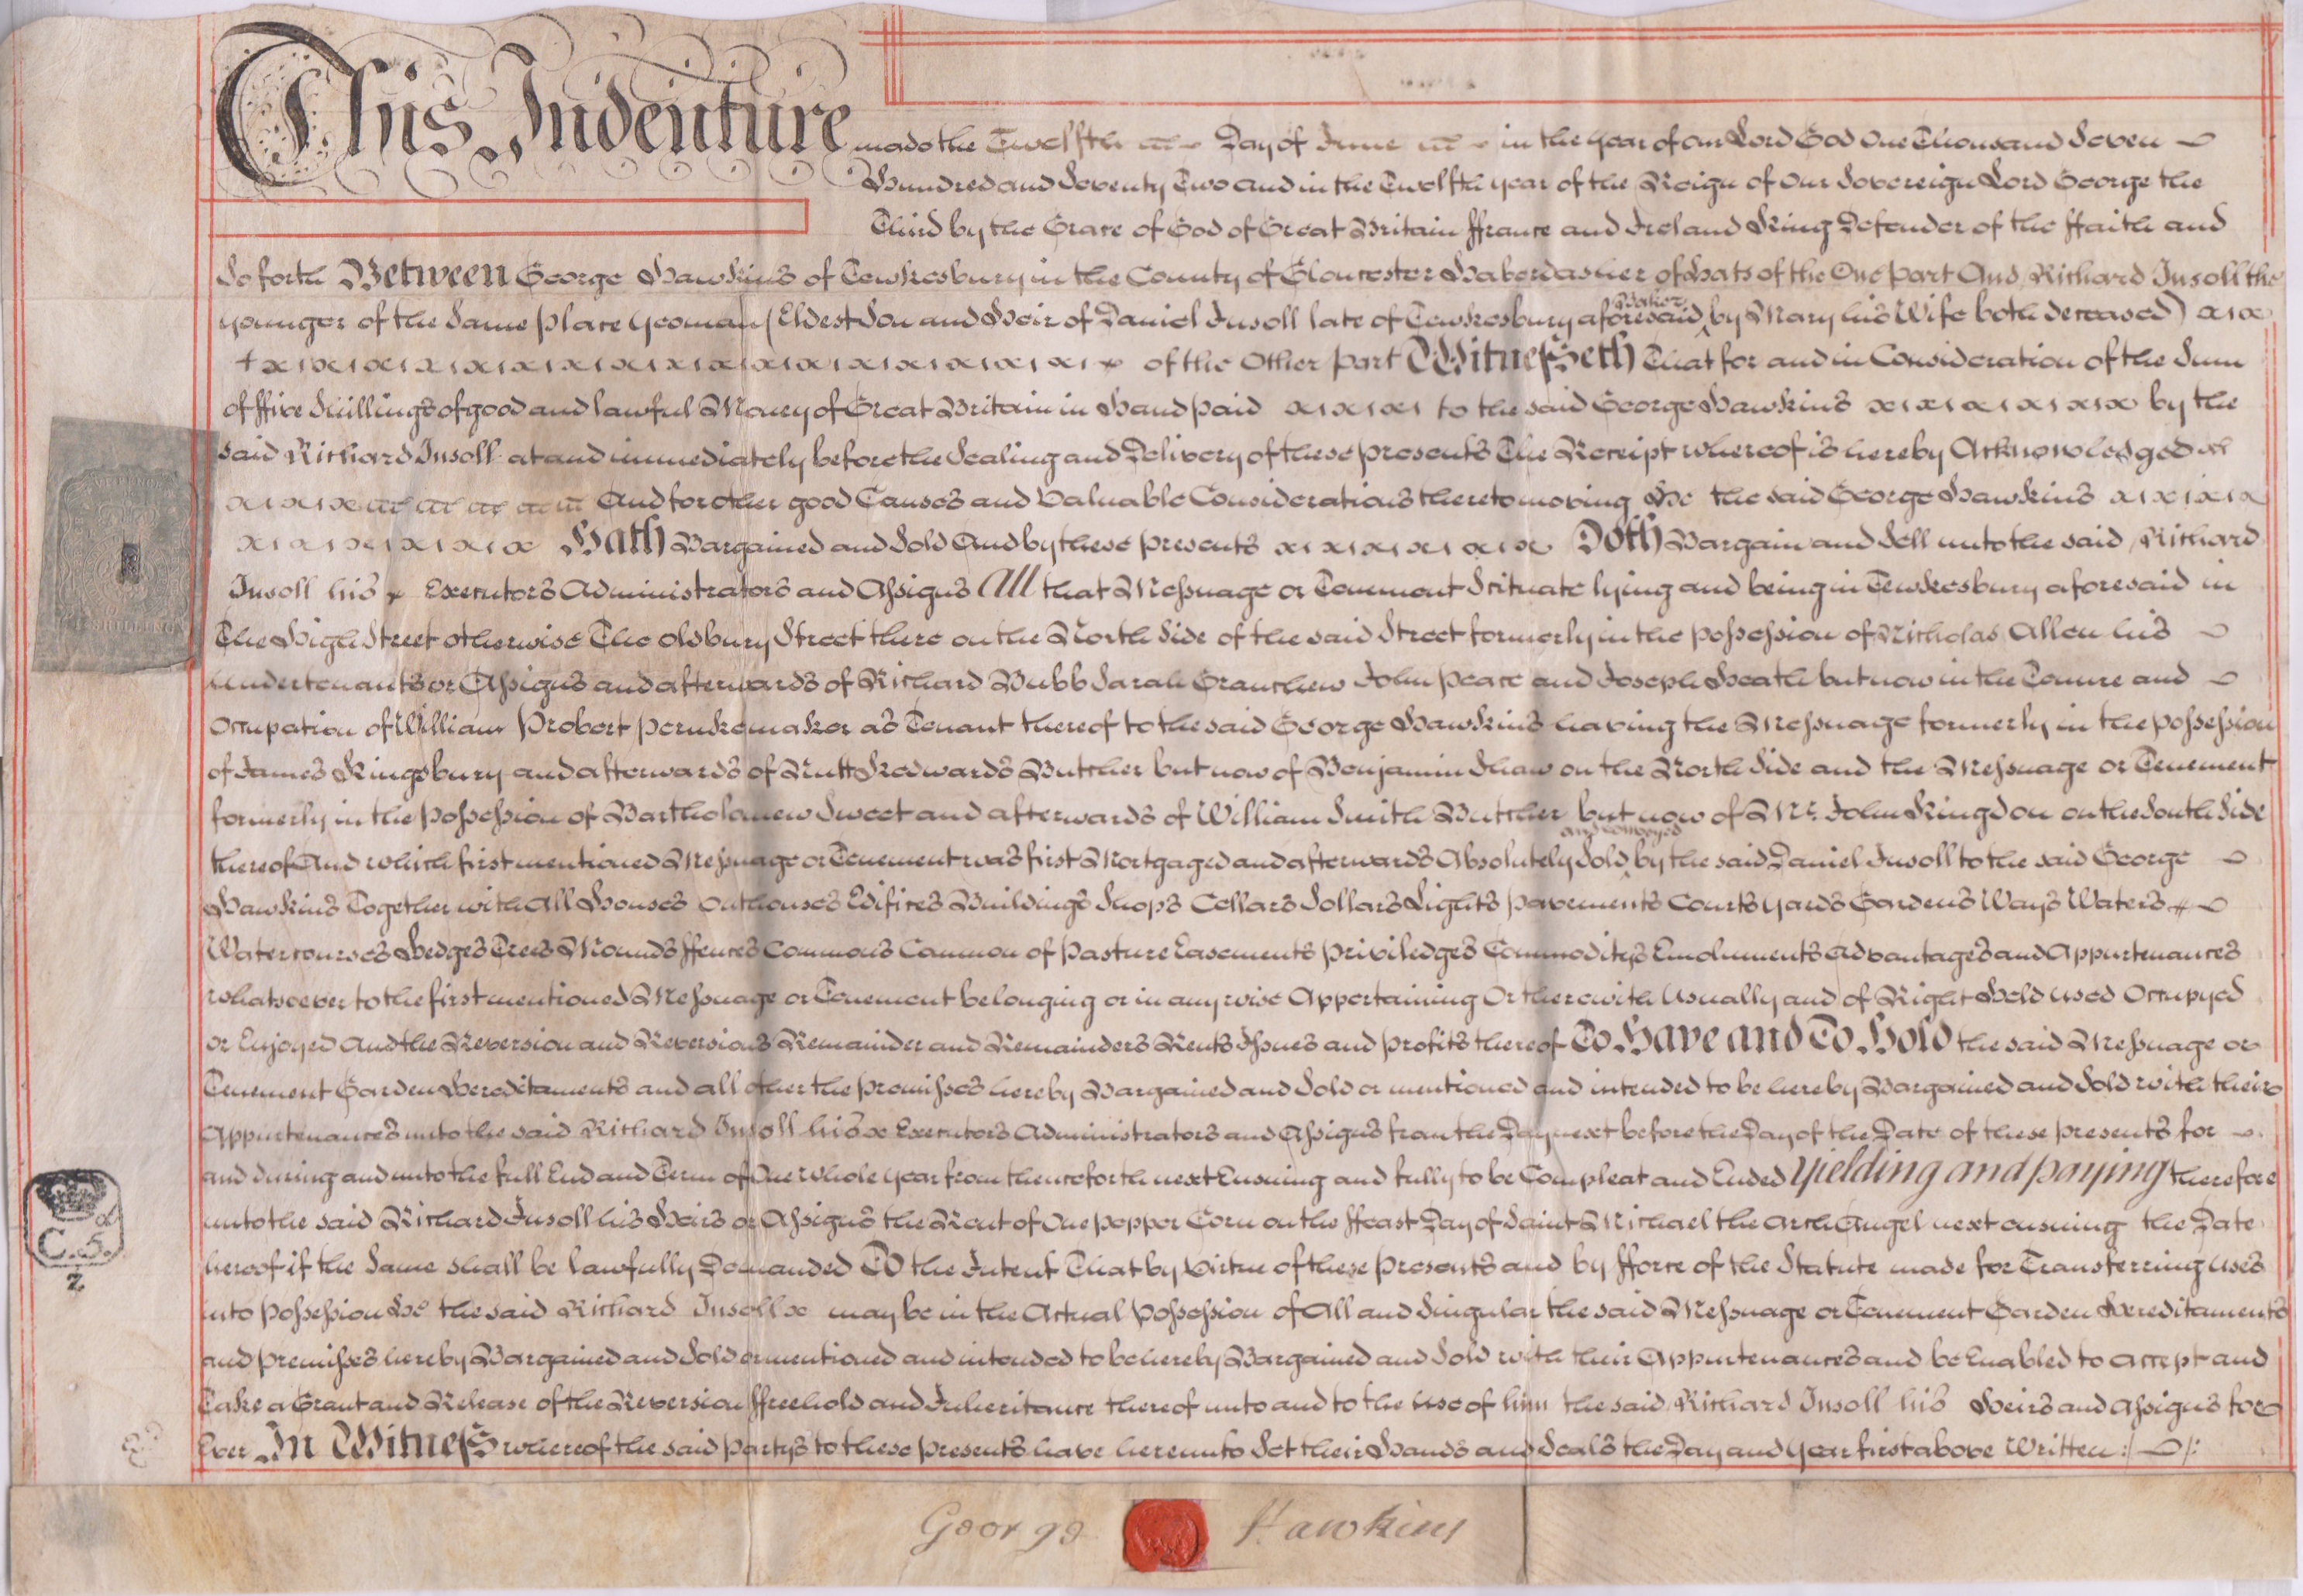 This Indenture made the Twelfth Day of June in the year of our Lord God One Thousand Seven
Hundred and Seventy Two and in the Twelfth year of the Reign of Our Sovereign Lord George the
Third by the Grace of God of Great Britain ffrance and Ireland King Defender of the ffaith and
So forth Between George Hawkins of Tewkesbury in the County of Gloucester Haberdasher of Hats of the One part And Richard Insoll the
younger of the Same place Yeoman (Eldest Son and Heir of Daniel Insoll late of Tewkesbury aforesaid by Mary his Wife both deceased)
of the Other part Witnesseth That for and in Consideration of the Sum
of ffive Shillings of good and lawful Money of Great Britain in Hand paid to the said George Hawkins by the
said Richard Insoll at and immediately before the Sealing and Delivery of these presents The Receipt whereof is hereby Acknowledged
And for other good Causes and Valuable Considerations thereto moving He the said George Hawkins
Hath Bargained and Sold And by these presents Doth Bargain and Sell unto the said Richard
Insoll his Executors Administrators and Assigns All that Messuage or Tenement Scituate lying and being in Tewkesbury aforesaid in
The High Street otherwise The Oldbury Street there on the North Side of the said Street formerly in the possession of Nicholas Allen his
Undertenants or Assigns and afterwards of Richard Bubb Sarah John Peace and Joseph Heath but now in the Tenure and
Occupation of William Probert Perukemaker as Tenant thereof to the said George Hawkins having the Messuage formerly in the possession
of James Kingsbury and afterwards of Butcher but now of Benjamin Shaw on the North Side and the Messuage or Tenement
formerly in the possession of Bartholomew Sweet and afterwards of William Smith Butcher but now of Mr. John Kingdon on the South Side
and conveyed
thereof And which first mentioned Messuage or Tenement was first Mortgaged and afterwards Absolutely Sold by the said Daniel Insoll to the said George
Hawkins Together with All Houses Outhouses Edifices Buildings Shops Cellars Sollars Lights pavements Courts Yards Gardens Ways Waters
Watercourses Hedges Trees Mounds ffences Commons Common of Pasture Easements priviledges Commoditys Emoluments Advantages and Appurtenances
whatsoever to the first mentioned Messuage or Tenement belonging or in any wise Appertaining Or therewith Usually and of Right Held used Occupyed
or Enjoyed And the Reversion and Reversions Remainder and Remainders Rents Issues and profits thereof To Have and To Hold the said Messuage or
Tenement Garden Hereditaments and all other the premisses hereby Bargained and Sold or mentioned and intended to be hereby Bargained and Sold with their
Appurtenances unto the said Richard Insoll his Executors Administrators and Assigns from the Day next before the Day of the Date of these presents for
and during and unto the full End and Term of One whole Year from thenceforth next Ensuing and fully to be Compleat and Ended Yielding and paying therefore
unto the said Richard Insoll his Heirs or Assigns the Rent of One pepper Corn on the ffeast Day of Saint Michael the Arch Angel next ensuing the Date
hereof if the Same shall be lawfully Demanded To the Intent That by Virtue of these presents and by fforce of the Statute made for Transferring uses
into possession He the said Richard Insoll may be in the Actual possession of All and Singular the said Messuage or Tenement Garden Hereditaments
and premisses hereby Bargained and Sold or mentioned and intended to be hereby Bargained and Sold with their Appurtenances and be Enabled to accept and
Take a Grant and Release of the Reversion ffreehold and Inheritance thereof unto and to the use of him the said Richard Insoll his Heirs and Assigns for
Ever In Witness whereof the said partys to these presents have hereunto Set their Hands and Seals the Day and Year first above Written
C.5.
2
George Hawkins